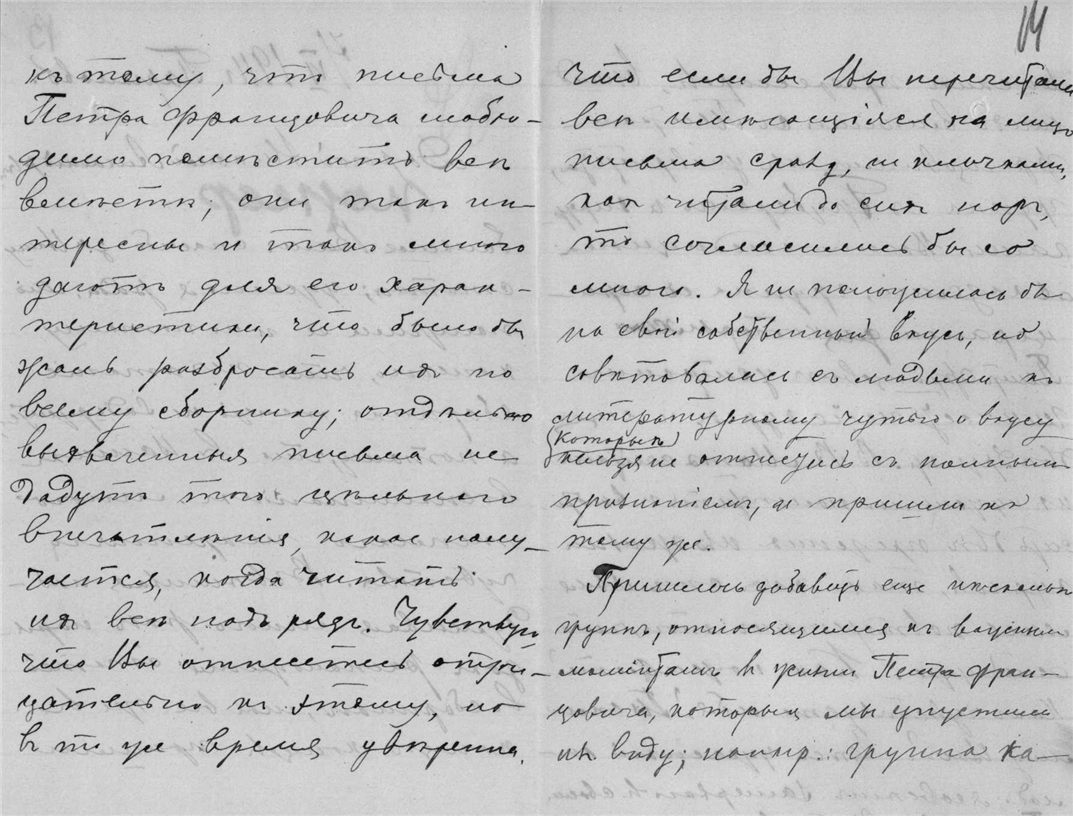 къ тому, что письма
Петра Францовича необхо-
димо помѣстить всѣ
вмѣстѣ; они такъ ин-
тересны и такъ много
даютъ для его харак-
теристики, что было бы
жаль разбросать ихъ по
всему сборнику; отдѣльно
выхваченныя письма не
дадутъ того цѣльнаго
впечатлѣнія, какое полу-
чается, когда читать
ихъ всѣ подъ рядъ. Чувствую,
что Вы отнесетесь отри-
цательно къ этому, но
въ то же время увѣренна,
14
что если бы Вы перечитали
всѣ имѣющіяся на лицо
письма сразу, не клочками,
какъ читали до сихъ поръ,
то согласились бы со
мною. Я не положилась бы
на свой собственный вкусъ, но
совѣтовалась съ людьми къ
литературному чутью и вкусу
которыхъ
нельзя не отнестись съ полнымъ
довѣріемъ, и пришли къ
тому же.
Пришлось добавить еще нѣсколько
группъ, относящихся къ важнымъ
моментамъ въ жизни Петра Фран-
цовича, которыя мы упустили
изъ виду; напр.: группа Ка-